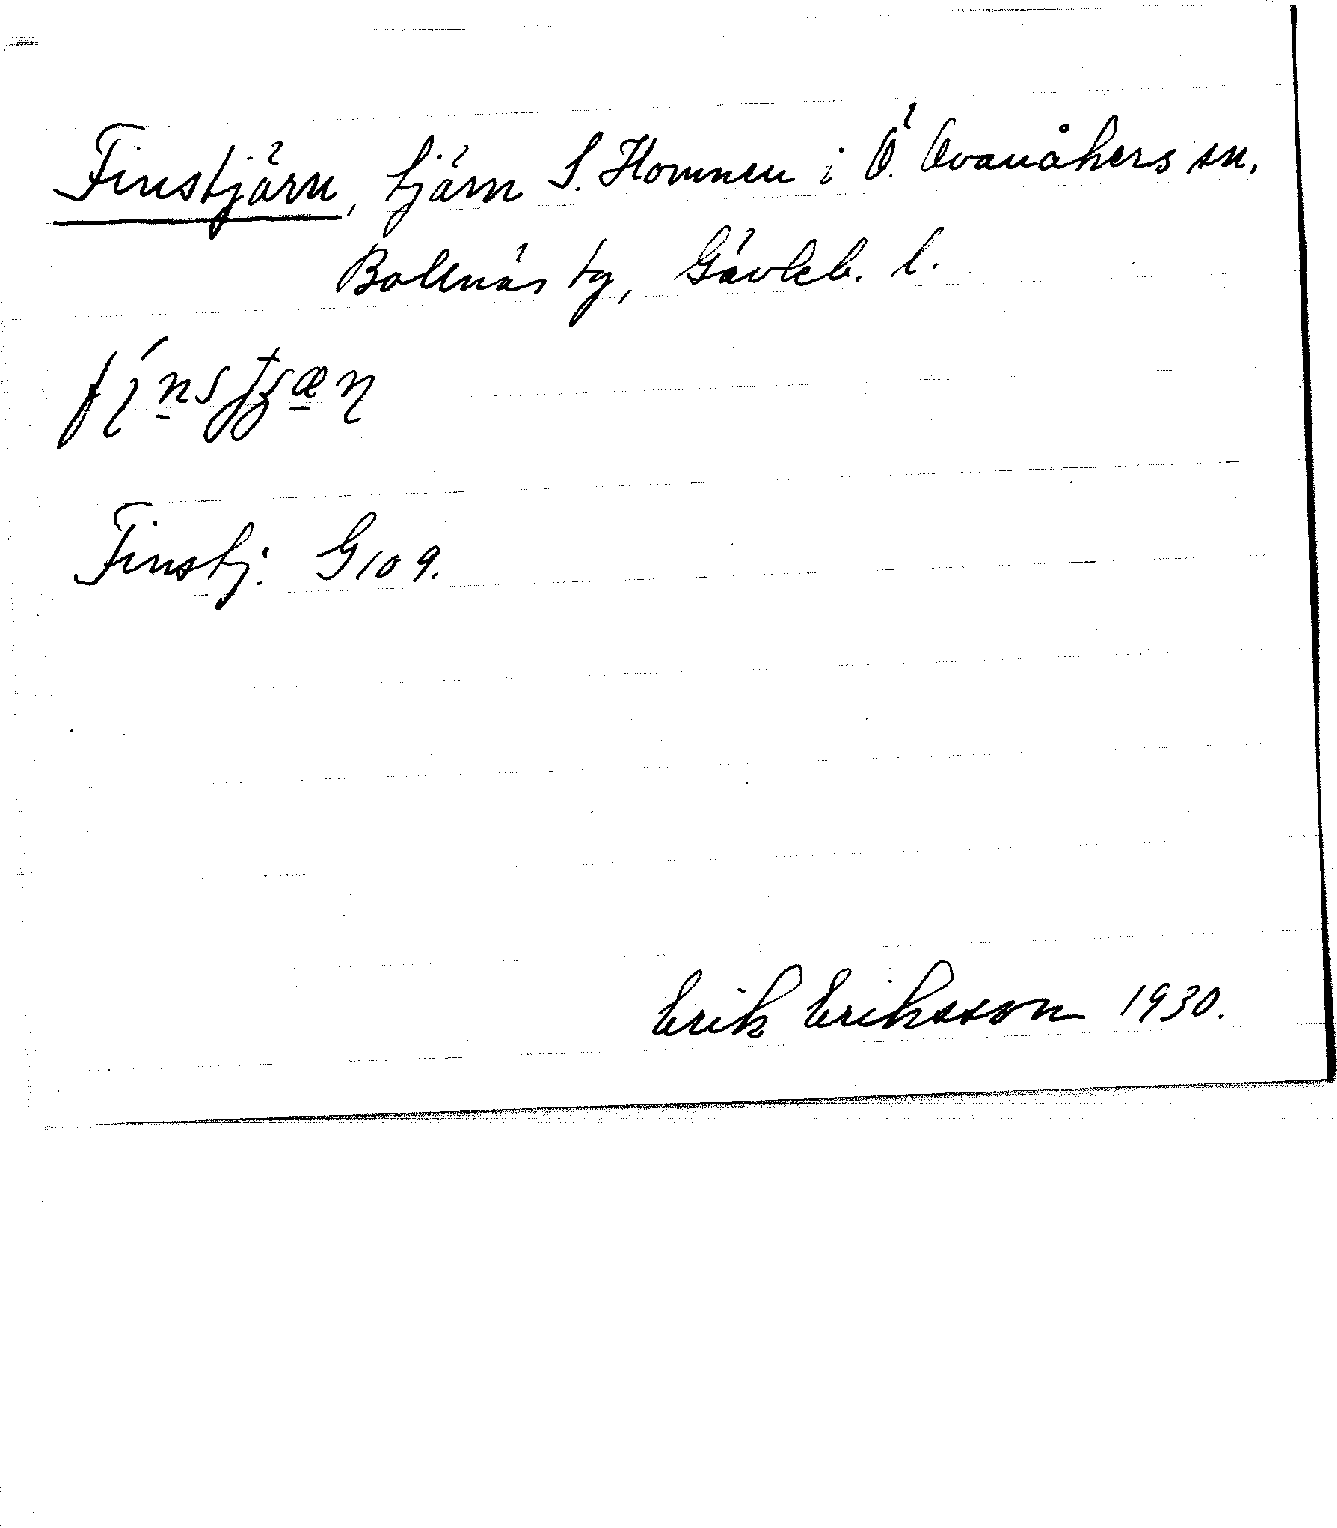 Finstjärn, tjärn S. Hommen i Ö. Ovanåkers sn,
Bollnäs tg, Gävleb. l.
Finstj. G 109.
Erik Eriksson 1930.